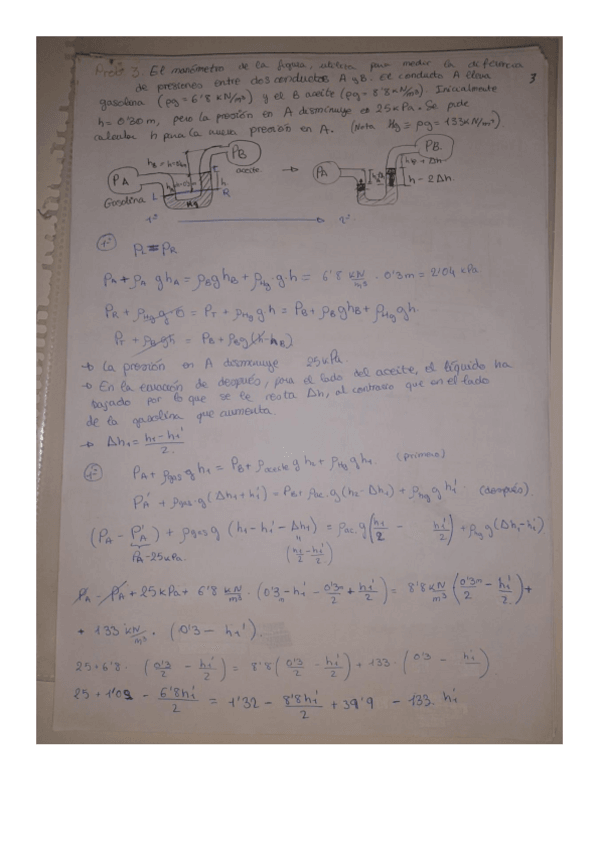 Prob 3. El manómetro de la figura, utiliza para medir la diferencia
de presiones entre dos conductos A y B. El conducto A lleva
gasolina (ρg = 6'8 KN/m³) y el B aceite (ρg = 8'8 KN/m³). Inicialmente
h = 0'30 m, pero la presión en A disminuye en 25 kPa. Se pide
calcular h para la nueva presión en A. (Nota Hg ≡ ρg = 133 KN/m³)
3
PA
PB
aceite
Gasolina
L
R
h
Hg
PA
PB
h - 2Δh
1º
2º
1º
PL = PR
PA + ρA g hA = ρB g hB + ρHg · g · h = 6'8 KN/m³ · 0'3m = 2'04 kPa
PR + ρHg g · 0 = PT + ρHg g h = PB + ρB g hB + ρHg g h
→ La presión en A disminuye 25 kPa.
→ En la ecuación de después, para el lado del aceite, el líquido ha
bajado por lo que se le resta Δh, al contrario que en el lado
de la gasolina que aumenta.
→ Δh1 = (h1 - h1')/2
PA + ρgas g h1 = PB + ρaceite g h2 + ρHg g h1 (primero)
PA' + ρgas · g (Δh1 + h1') = PB + ρac. g (h2 - Δh1) + ρHg g h1' (después).
(PA - PA') + ρgas g (h1 - h1' - Δh1) = ρac g (h1/2 - h1'/2) + ρHg g (Δh1 - h1')
PA - 25 kPa. (h1/2 - h1'/2)
PA - PA + 25 kPa + 6'8 KN/m³ · (0'3m - h1' - 0'3m/2 + h1'/2) = 8'8 KN/m³ (0'3m/2 - h1'/2) +
+ 133 KN/m³ · (0'3 - h1').
25 + 6'8 · (0'3/2 - h1'/2) = 8'8 (0'3/2 - h1'/2) + 133 · (0'3 - h1')
25 + 1'02 - 6'8h1'/2 = 1'32 - 8'8h1'/2 + 39'9 - 133 · h1'